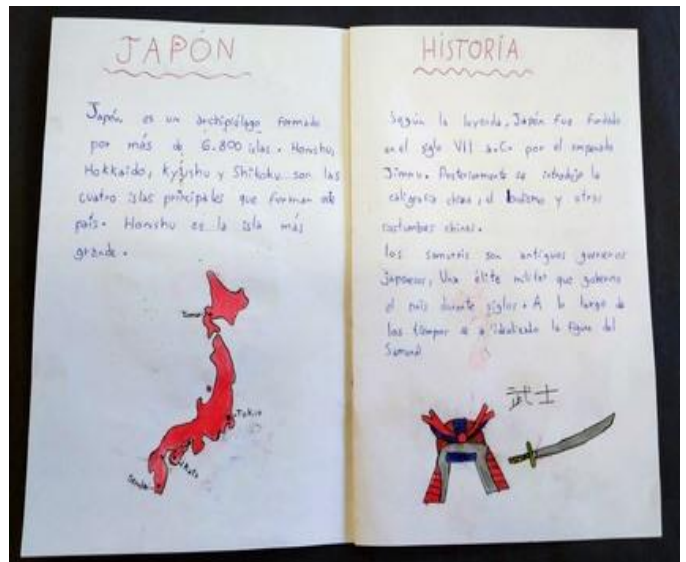 JAPÓN
Japón es un archipiélago formado
por más de 6.800 islas. Honshu,
Hokkaido, Kyushu y Shikoku son las
cuatro islas principales que forman este
país. Honshu es la isla más
grande.
Tokio
HISTORIA
Según la leyenda, Japón fue fundado
en el siglo VII a.C. por el emperador
Jimmu. Posteriormente se introdujo la
caligrafía china, el budismo y otras
costumbres chinas.
los samuráis son antiguos guerreros
japoneses, Una élite militar que gobernó
el país durante siglos. A lo largo de
los tiempos se a idealizado la figura del
Samurái
武士